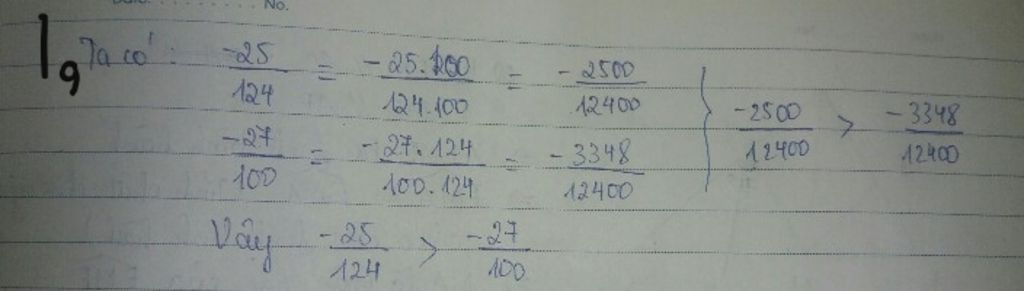 No.
19 Ta có: -25/124 = -25.100/124.100 = -2500/12400
-27/100 = -27.124/100.124 = -3348/12400
} -2500/12400 > -3348/12400
Vậy -25/124 > -27/100